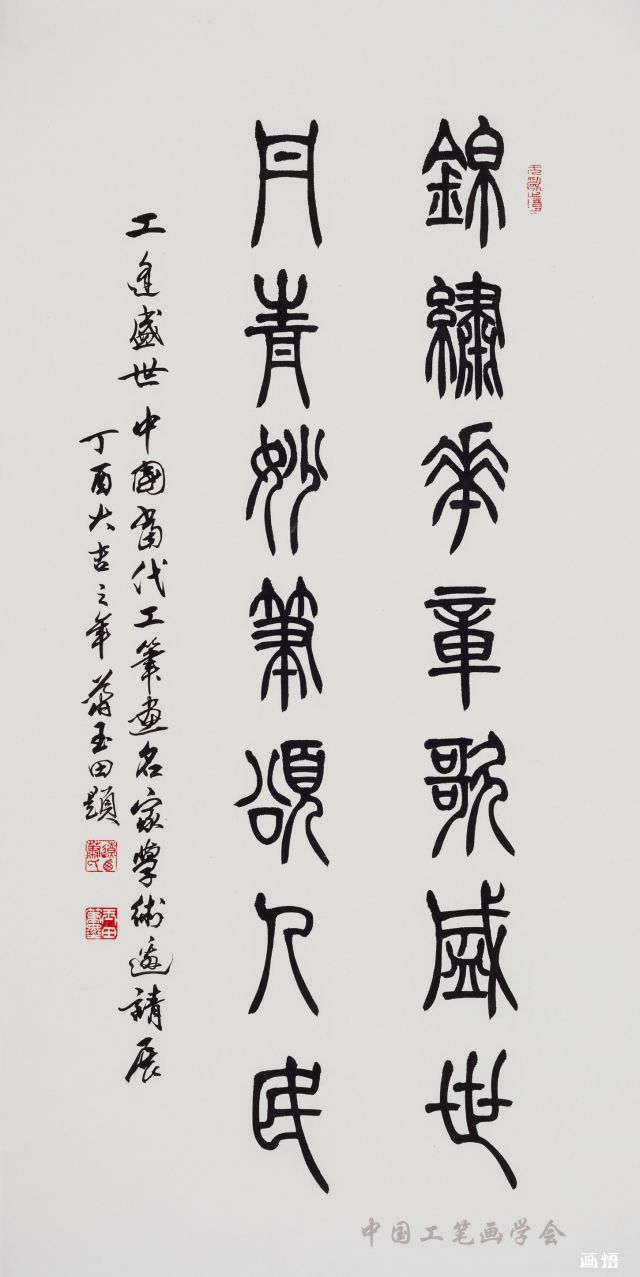 錦繡華章歌盛世
丹青妙筆頌人民
工逢盛世中國當代工筆畫名家學術邀請展
丁酉大吉之年蕭玉田題
中国工笔画学会
画悟